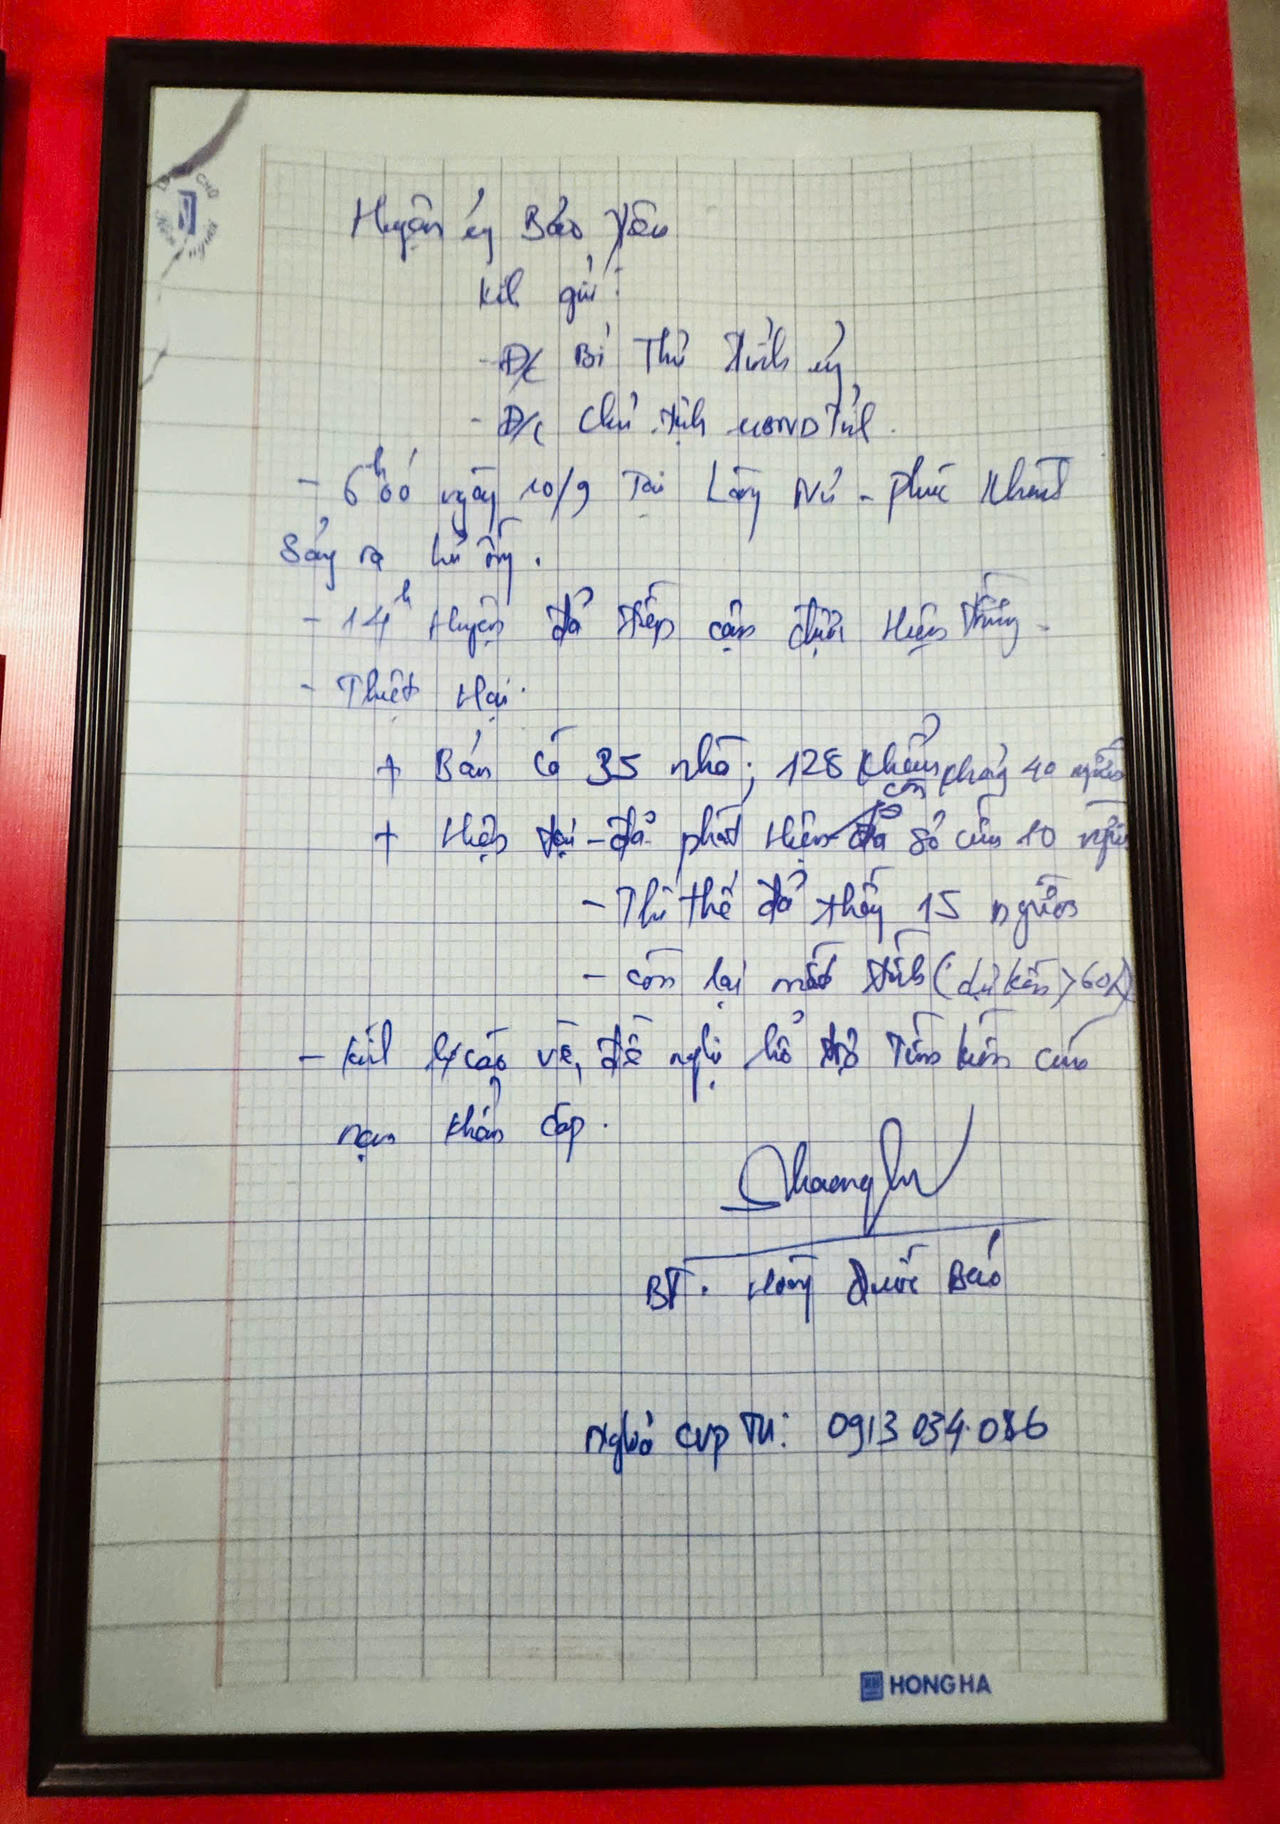 Huyện ủy Bảo Yên
Kính gửi:
- Đ/c Bí Thư Tỉnh ủy
- Đ/c Chủ tịch UBND Tỉnh.
- 6h00 ngày 10/9 Tại Làng Nủ - Phúc Khánh
Sảy ra lũ ống.
- 14h Huyện đã tiếp cận được Hiện trường.
- Thiệt Hại:
+ Bản có 35 nhà; 128 khẩu
+ Hiện tại - đã phát Hiện số còn 10 người
- Thi thể đã thấy 15 người
- còn lại mất tích (dự kiến > 60
- Kính b/cáo về, đề nghị hỗ trợ Tìm kiếm cứu
nạn khẩn cấp.
BT. Hoàng Quốc Bảo
CVP TU: 0913 034.086
HONG HA